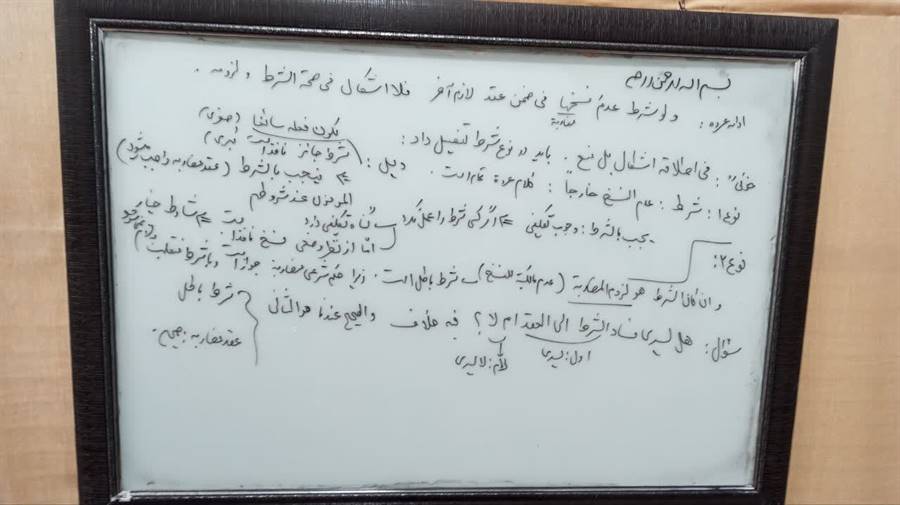 بسم الله الرحمن الرحیم
ادامه عروه: ولو شرط عدم فسخها فی ضمن عقد لازم آخر فلا اشکال فی صحة الشرط و لزومه.
مضاربة
خوئی: فی اطلاقه اشکال بل منع. باید دو نوع شرط تفصیل داد:
نوع ۱: شرط: عدم الفسخ خارجاً: کلام عروة تمام است. دلیل:
یکون فعله سائغا (صغری)
شرط جائز نافذ است (کبری)
⇐ فیجب بالشرط (عقد مضاربه واجب میشود)
المؤمنون عند شروطهم
یجب بالشرط: وجوب تکلیفی ⇐ اگر کسی شرط را عمل نکرد گناه تکلیفی دارد
امّا از نظر وضعی فسخ نافذ است ⇐ شارط خیار دارد
نوع ۲:
و ان کان الشرط هو لزوم المضاربة (عدم مالکیة للفسخ) شرط باطل است. زیرا حکم شرعی مضاربه جواز است و با شرط منقلب
سؤال: هل یسری فساد الشرط الی العقد ام لا؟ فیه خلاف والصحیح عندنا هو الثانی
اول: یسری
دوم: لا یسری
شرط باطل
عقد مضاربه: صحیح